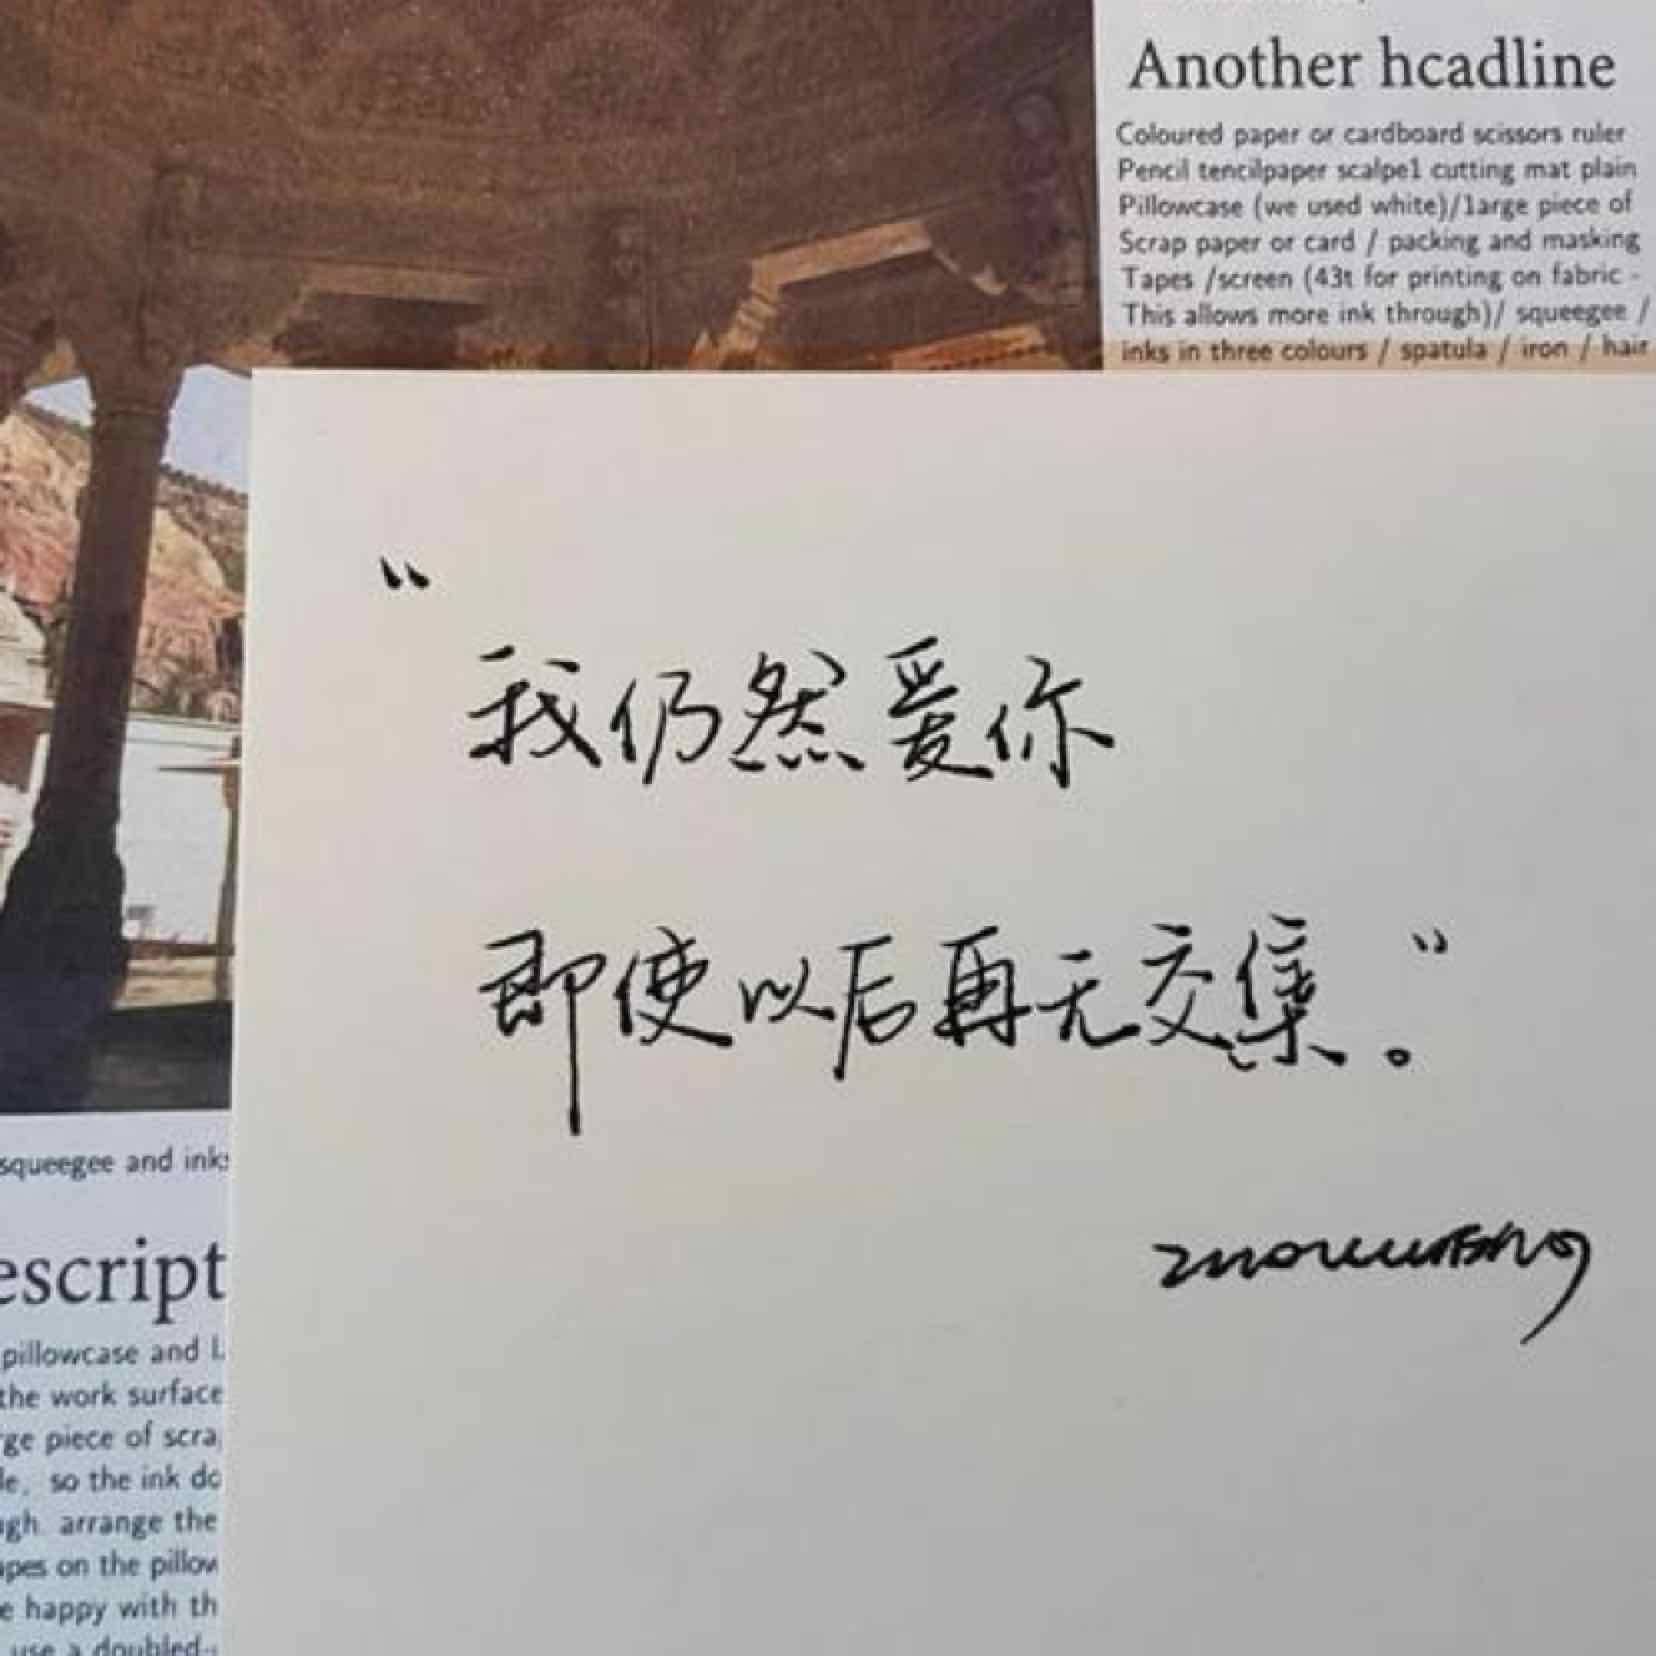 Another hcadline
Coloured paper or cardboard scissors ruler
Pencil tencilpaper scalpel cutting mat plain
Pillowcase (we used white)/large piece of
Scrap paper or card / packing and masking
Tapes /screen (43t for printing on fabric -
This allows more ink through)/ squeegee /
inks in three colours / spatula / iron / hair
“我仍然爱你
即使以后再无交集。”
squeegee and ink
escript
pillowcase and
the work surface
piece of
so the ink
arrange the
on the
happy with
use a doubled